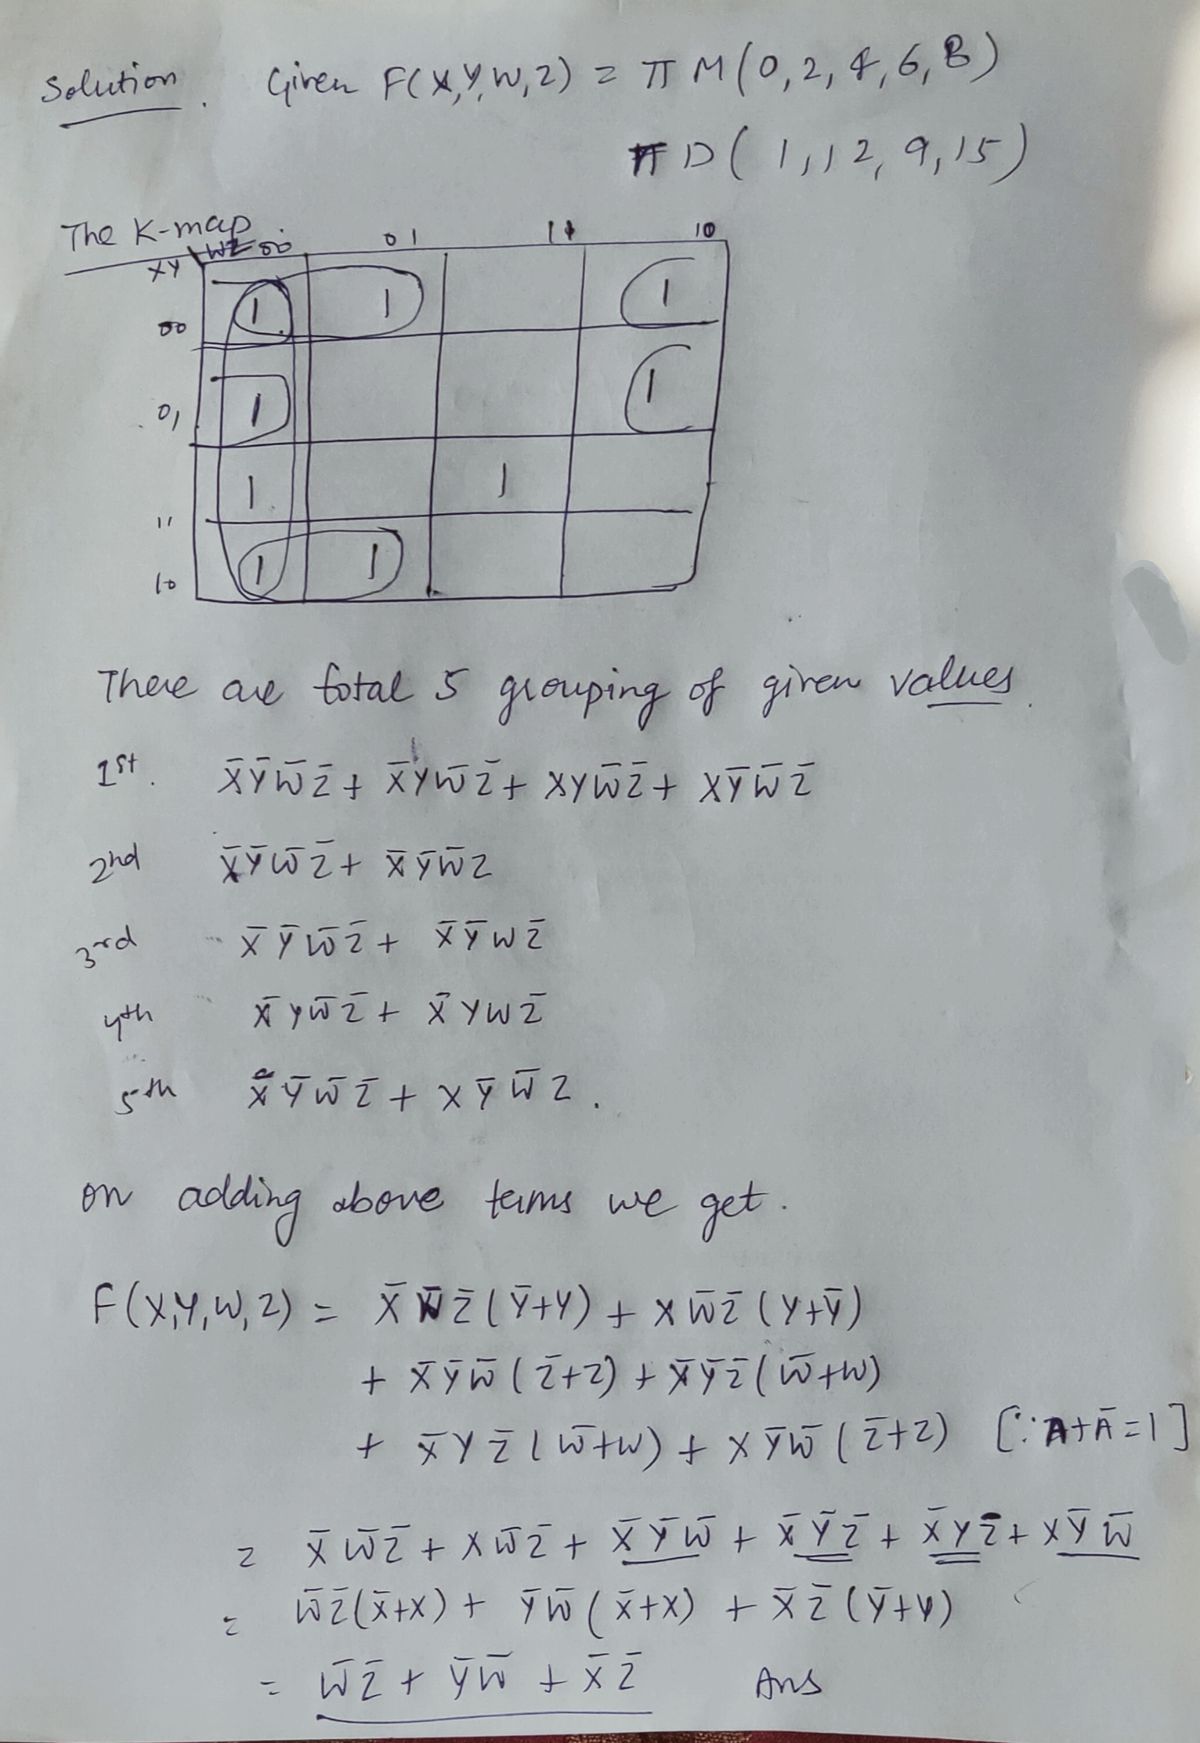 Solution. Given F(X,Y,W,Z) = π M(0,2,4,6,8)
π D(1,12,9,15)
The K-map
XY WZ 00 01 11 10
00 1 1 1
01 1 1
11 1 1
10 1 1
There are total 5 grouping of given values.
1st. X̄ȲW̄Z̄ + X̄YW̄Z̄ + XYW̄Z̄ + XȲW̄Z̄
2nd X̄ȲW̄Z̄ + X̄ȲW̄Z
3rd X̄ȲW̄Z̄ + X̄ȲWZ̄
4th X̄YW̄Z̄ + X̄YWZ̄
5th ȲW̄Z̄ + XȲW̄Z.
on adding above terms we get.
F(X,Y,W,Z) = X̄W̄Z̄(Ȳ+Y) + XW̄Z̄(Y+Ȳ)
+ X̄ȲW̄(Z̄+Z) + X̄ȲZ̄(W̄+W)
+ X̄YZ̄(W̄+W) + XȲW̄(Z̄+Z) [∵ A+Ā=1]
= X̄W̄Z̄ + XW̄Z̄ + X̄ȲW̄ + X̄ȲZ̄ + X̄YZ̄ + XȲW̄
= W̄Z̄(X̄+X) + ȲW̄(X̄+X) + X̄Z̄(Ȳ+Y)
= W̄Z̄ + ȲW̄ + X̄Z̄ Ans